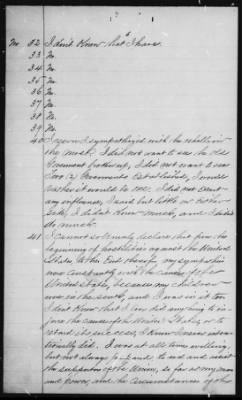 No 32 I don't Know that I have.
33 No.
34 No.
35 No.
36 No.
37 No.
38 No.
39 No.
40 I reckon I sympathized with the rebellion
the most. I did not want to see the old
Government broken up, I did not want to see
two (2) Governments Established, I would
rather it would be one. I did not exert
any influence, I said but little on Either
side, I didn't Know much, and I didn't
do much.
41 I cannot solemnly declare that from the
beginning of hostilities against the United
States to the End thereof, my sympathies
were constantly with the cause of the
United States, because my children
were in the south, and I was in it too
I don't Know that I Ever did anything to in-
jure the cause of the United States, or to
retard its success, I Know I never inten-
tionally did. I was at all times willing
but not always to aid and assist
the supporters of the Union, so far as my means
and power, and the circumstances of the